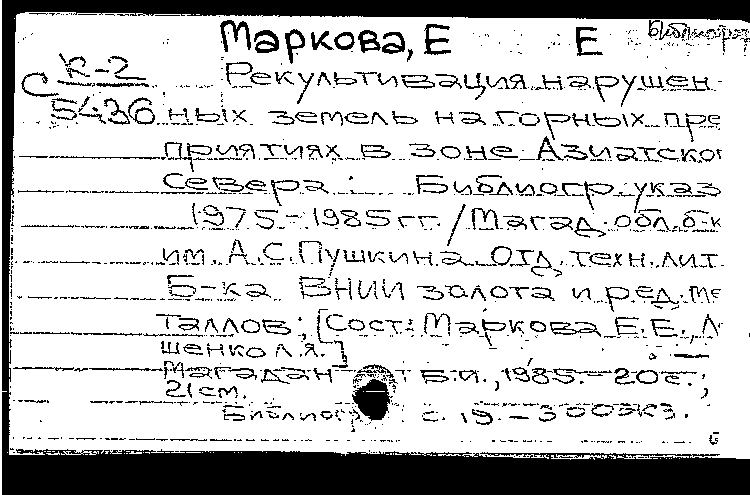 Маркова, Е Е Библиограф
К-2 Рекультивация нарушен-
С 5436 ных земель на горных пре
приятиях в зоне Азиатско
Севера: Библиогр. указ
1975-1985 гг. / Магад. обл. б-к
им. А.С. Пушкина. Отд. техн. лит.
Б-ка ВНИИ золота и ред. ме
таллов; [Сост.: Маркова Е.Е., Л
шенко Л.Я.]
Магадан : Б.и., 1985. - 20с.;
21см.
Библиогр : с. 19. - 300экз.